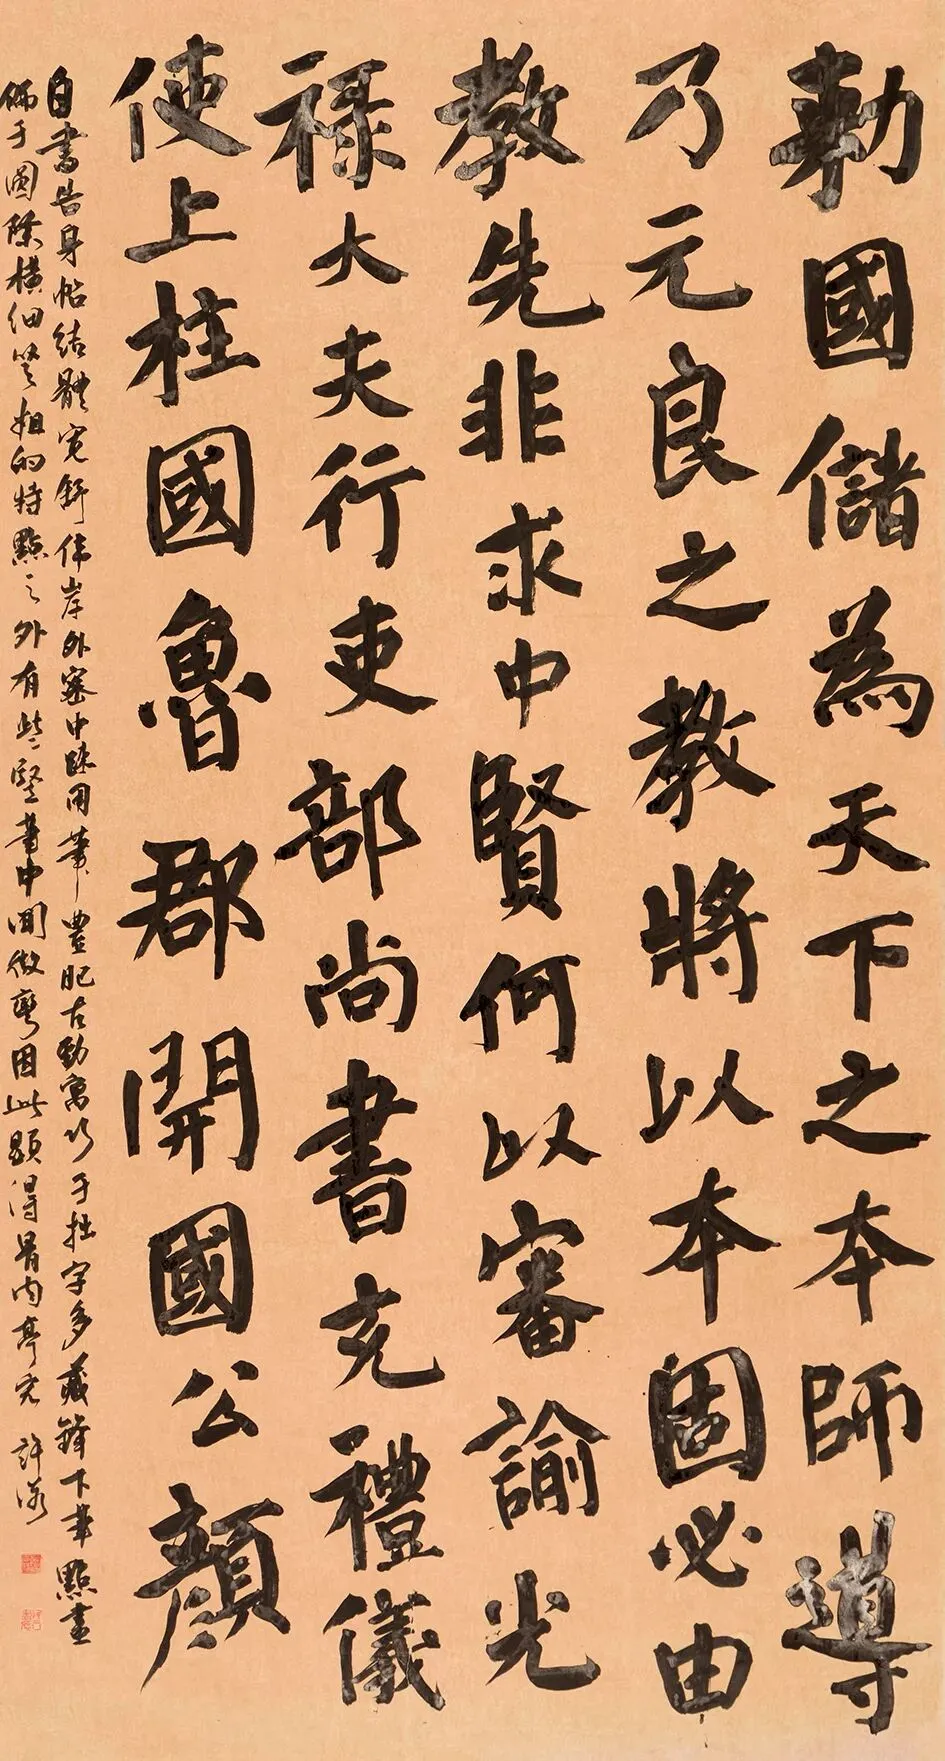 勅國儲為天下之本師導
乃元良之教將以本固必由
教先非求中賢何以審諭光
禄大夫行吏部尚書充禮儀
使上柱國魯郡開國公顏
自書告身帖結體寬舒偉岸外密中疏用筆豐肥古勁寓巧于拙字多藏鋒下筆點畫
飾于圓除橫細竪粗的特點之外有些竪畫中間微彎因此顯得骨肉亭勻 許